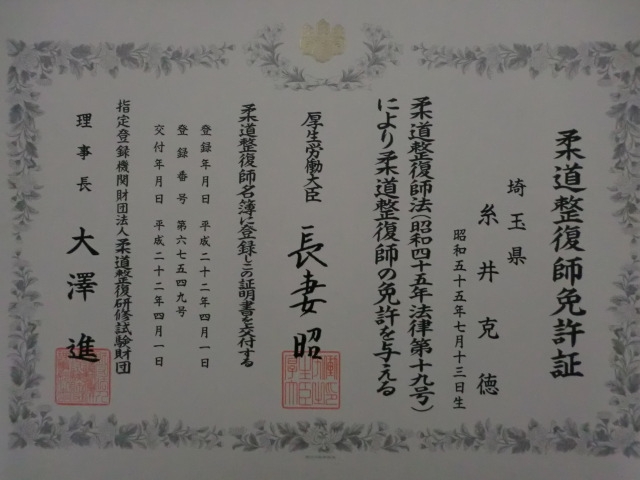 柔道整復師免許証
埼玉県
糸井克徳
昭和五十五年七月十三日生
柔道整復師法(昭和四十五年法律第十九号)
により柔道整復師の免許を与える
厚生労働大臣 長妻昭
柔道整復師名簿に登録しこの証明書を交付する
登録年月日 平成二十二年四月一日
登録番号 第六七五四九号
交付年月日 平成二十二年四月一日
指定登録機関財団法人柔道整復研修試験財団
理事長 大澤進